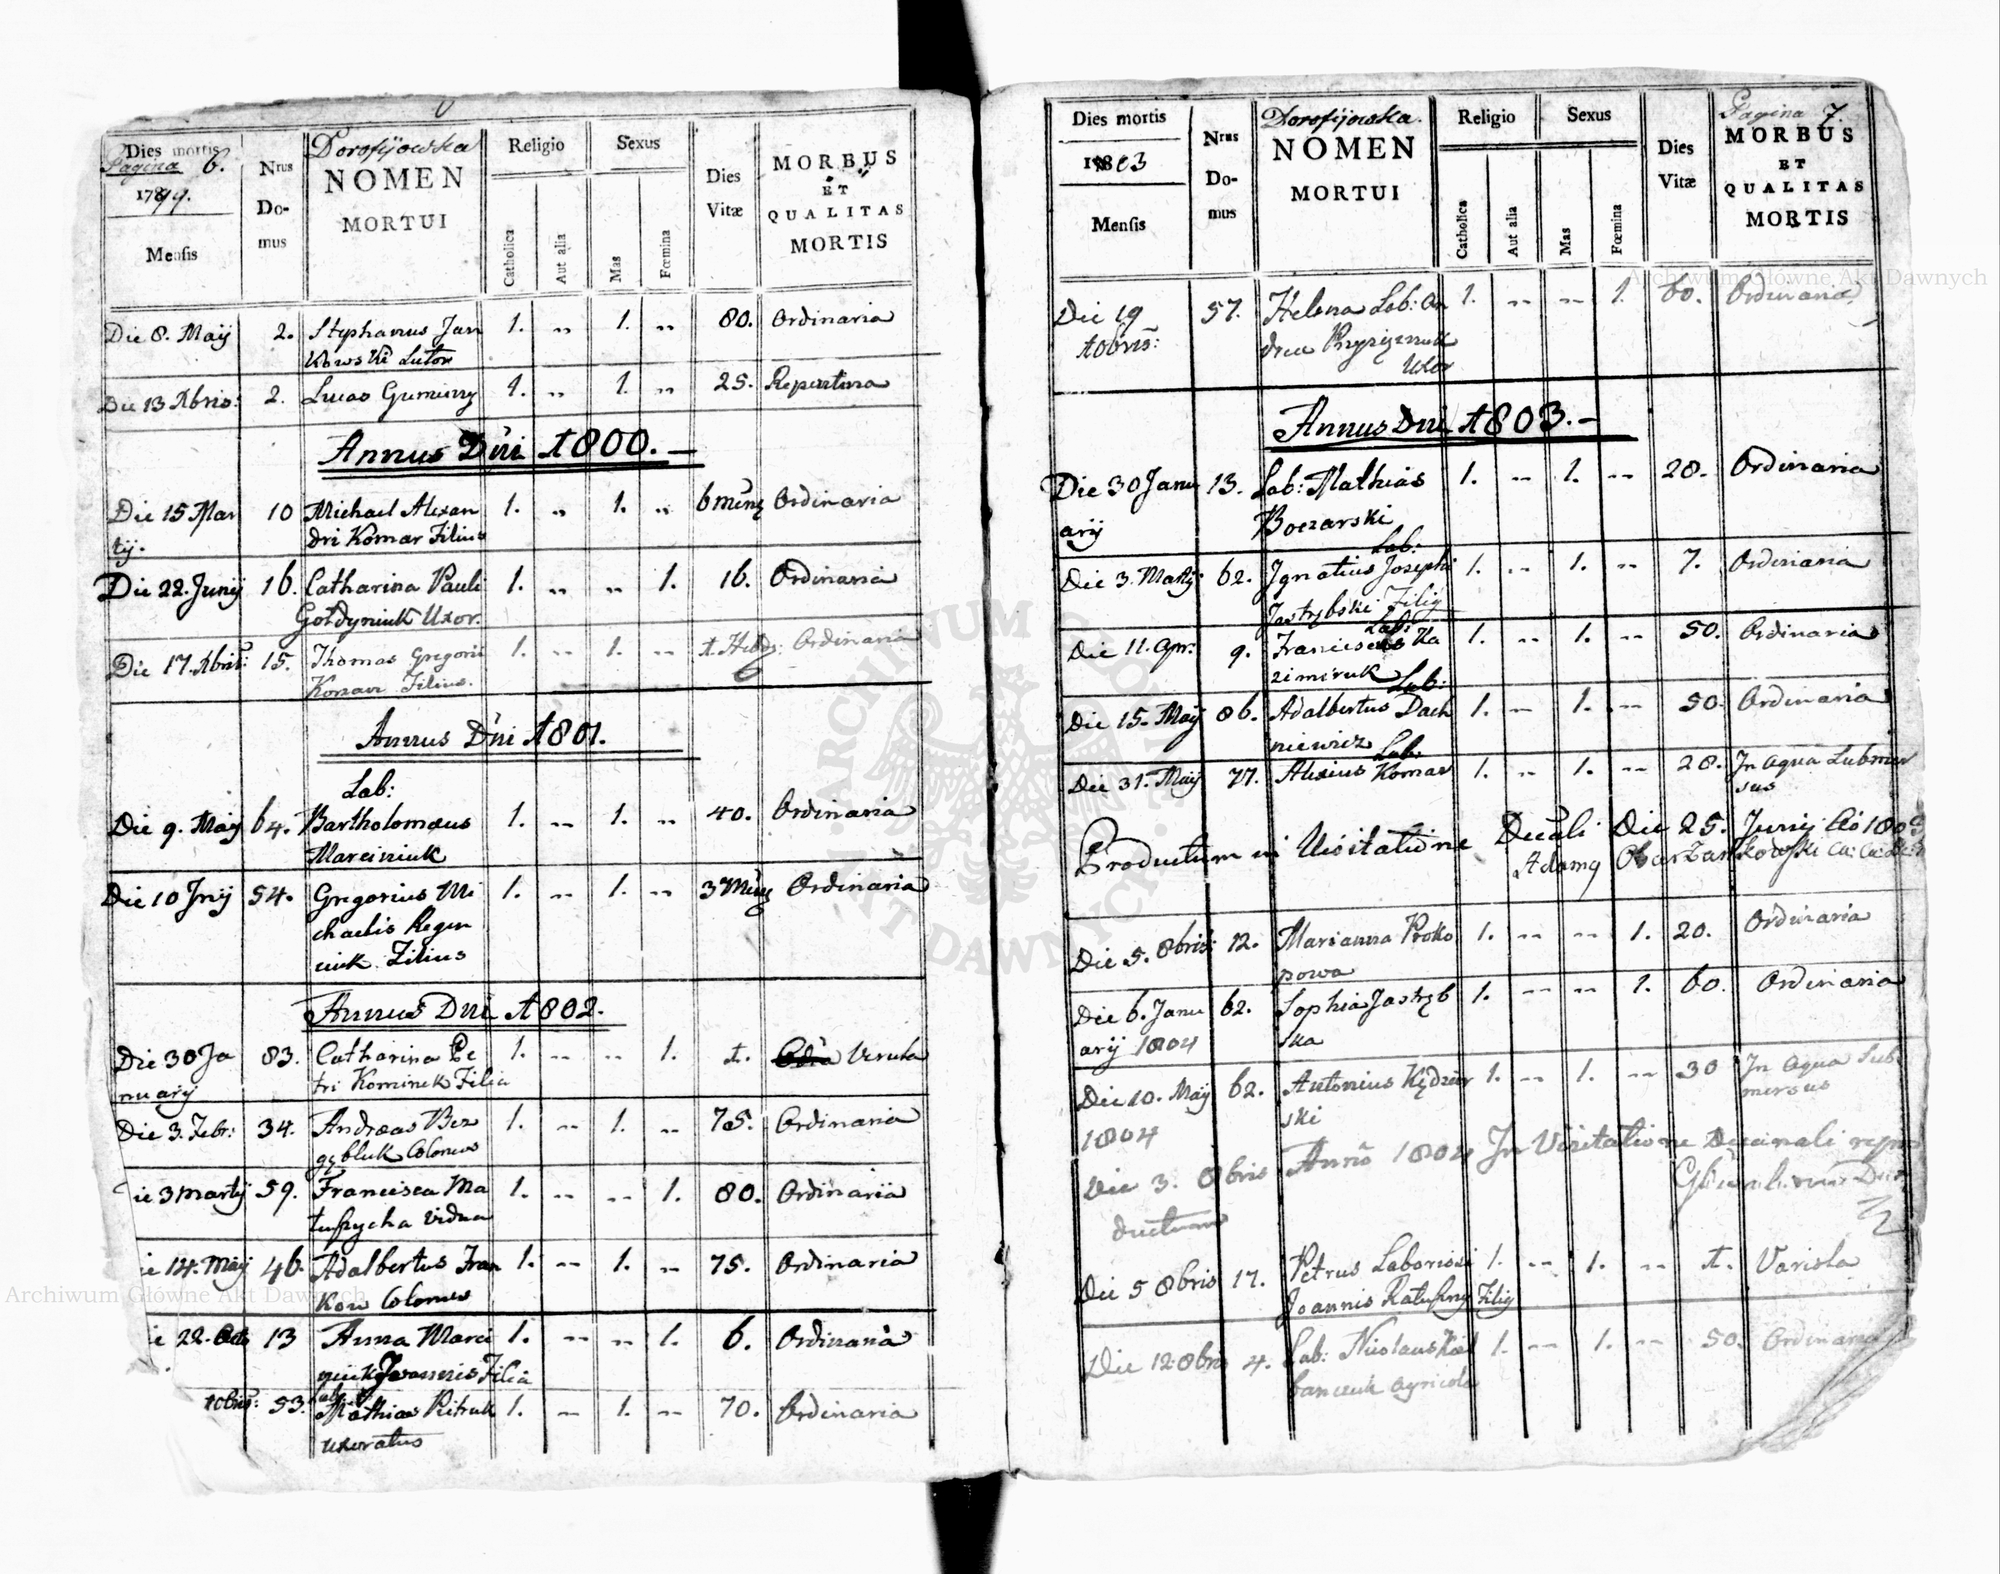 Dies mortis
Pagina 6.
1799.
Mensis
Nrus Domus
Dorofijowska
NOMEN
MORTUI
Religio
Catholica
Aut alia
Sexus
Mas
Fœmina
Dies Vitæ
MORBUS
ET
QUALITAS
MORTIS
Die 8. Maij 2. Stephanus Jan 1. „ 1. „ 80. Ordinaria
kowski Lutor
Die 13 Xbris: 2. Lucas Guminny 1. „ 1. „ 25. Repentina
Annus Dni 1800.—
Die 15 Mar 10 Michael Alexan 1. „ 1. „ 6 mens Ordinaria
tij. dri Komar Filius
Die 22. Junij 16. Catharina Pauli 1. „ „ 1. 16. Ordinaria
Gołdyniuk Uxor.
Die 17. Xbris: 15. Thomas Gregorii 1. -- 1. -- 1. Hebd: Ordinaria
Filius.
Annus Dni 1801.
Lab:
Die 9. Maij 64. Bartholomæus 1. -- 1. -- 40. Ordinaria
Marciniuk
Die 10 Jnij 54. Gregorius Mi 1. -- 1. -- 3 Mens Ordinaria
chaelis Regen
iuk Filius
Annus Dni 1802.
Die 30 Ja 83. Catharina Pe 1. -- -- 1. 1.
nuarij tri Kominek Filia
Die 3. Febr: 34. Andreas Bez 1. -- 1. -- 75. Ordinaria
gębluk Colonus
ie 3 Martij 59. Francisca Ma 1. -- -- 1. 80. Ordinaria
tuszycha vidua
ie 14. Maij 46. Adalbertus Fran 1. -- 1. -- 75. Ordinaria
kow Colonus
ie 22. 13 Anna Marci 1. -- -- 1. 6. Ordinaria
niuk Joannis Filia
Lab:
10bris: 53. Mathias Pietruk 1. -- 1. -- 70. Ordinaria
uxoratus
Dies mortis
1803
Mensis
Nrus Domus
Dorofijowska.
NOMEN
MORTUI
Religio
Catholica
Aut alia
Sexus
Mas
Fœmina
Dies Vitæ
Pagina 7.
MORBUS
ET
QUALITAS
MORTIS
Die 19 57. Helena Lab: An 1. -- -- 1. 60. Ordinaria
10bris: drea
Uxor
Annus Dni 1803.—
Die 30 Janu 13. Lab: Mathias 1. -- 1. -- 28. Ordinaria
arij Boczarski
Lab:
Die 3. Martij 62. Ignatius Josephi 1. -- 1. -- 7. Ordinaria
Jastrębski Filij
Lab:
Die 11. Apr: 9. Franciscus Ka 1. -- 1. -- 50. Ordinaria
zimiruk
Lab:
Die 15. Maij 86. Adalbertus Dach 1. -- 1. -- 50. Ordinaria
niewicz
Lab:
Die 31. Maij 77. Alexius Komar 1. -- 1. -- 28. In aqua Submer
sus
Productum in Visitatione Decali Die 25. Junij Ao 1803
Die 5. 8bris: 12. Marianna Proko 1. -- -- 1. 20. Ordinaria
powa
Die 6. Janu 62. Sophia Jastręb 1. -- -- 1. 60. Ordinaria
arij 1804 ska
Die 10. Maij 62. Antonius Kędzier 1. -- 1. -- 30 In aqua Sub
1804 ski mersus
Die 3. 8bris Anno 1804 In Visitatione Decanali repro
ductum
Die 5 8bris 17. Petrus Laboriosi 1. -- 1. -- 1. Variola
Joannis Ratuszny Filij
Die 12. 8bris 4. Lab: Nicolaus 1. -- 1. -- 50. Ordinaria
agricola
Archiwum Główne Akt Dawnych
Archiwum Główne Akt Dawnych
ARCHIWUM GŁÓWNE AKT DAWNYCH